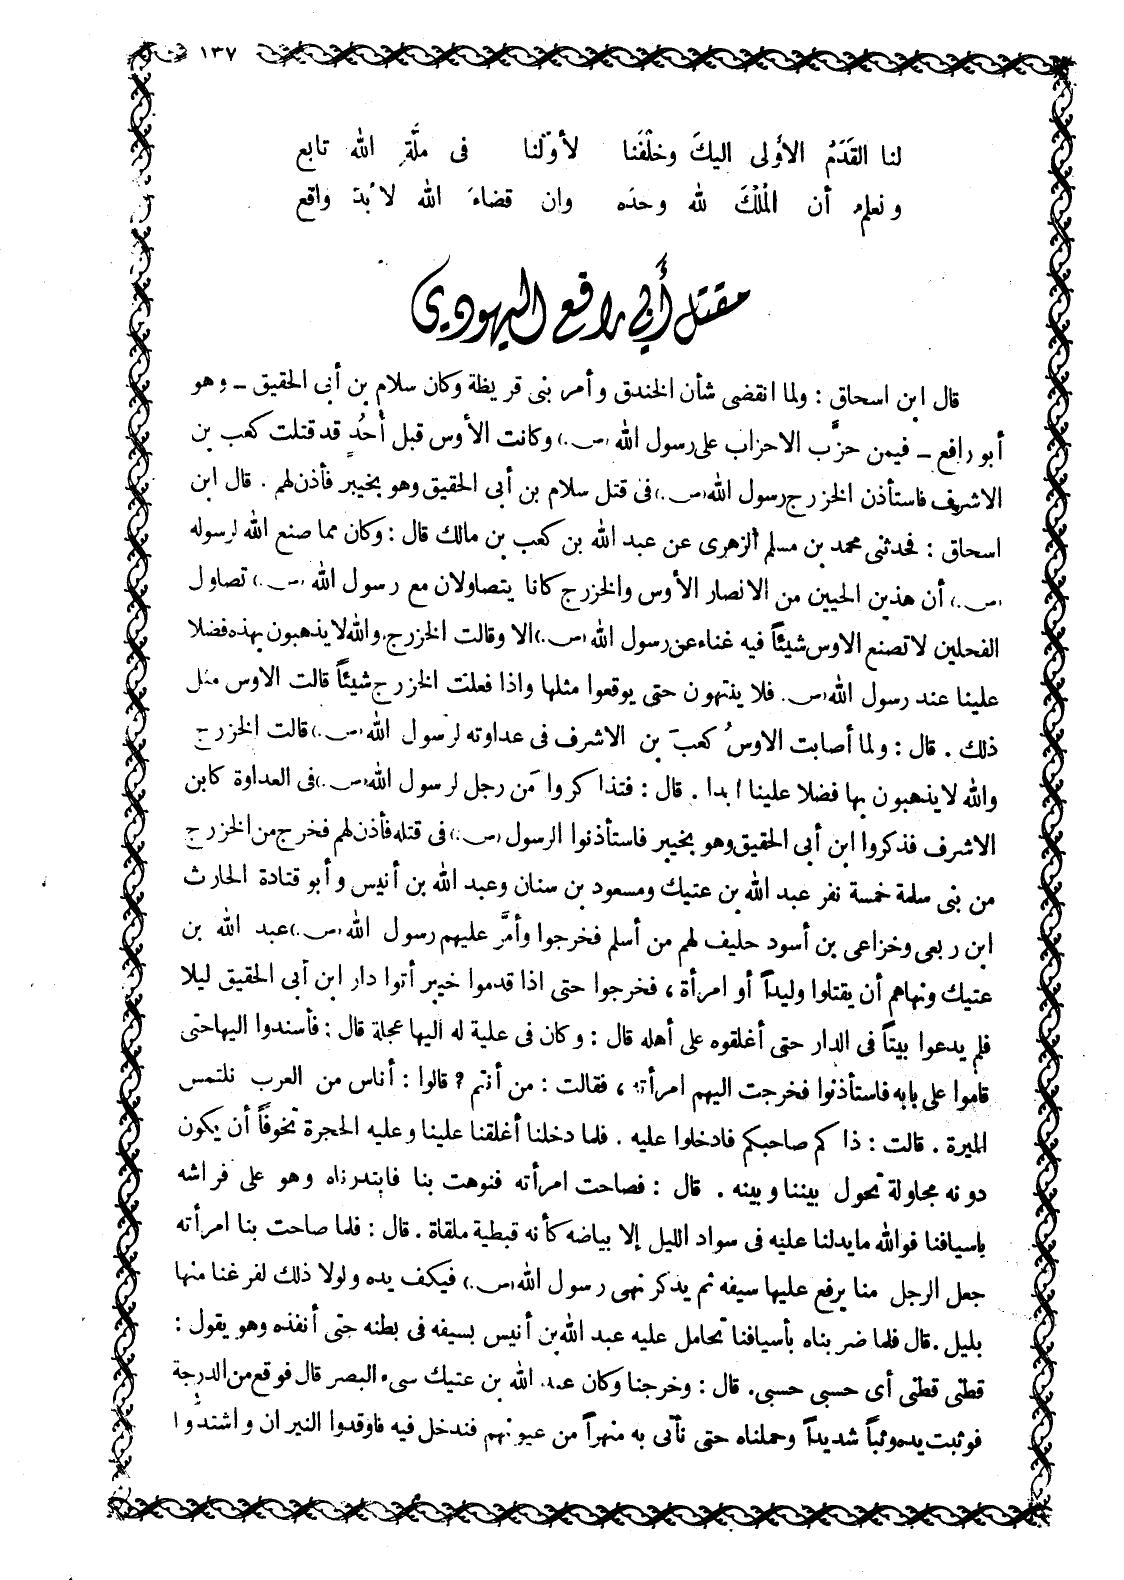 ١٣٧
لنا القَدَمُ الأولى اليكَ وخلْفَنا لأوّلنا فى ملَّةِ الله تابع
ونعلم أن المُلْكَ لله وحدَه وان قضاءَ الله لابُدَ واقع
مقتل أبي رافع اليهودي
قال ابن اسحاق : ولما انقضى شأن الخندق وأمر بنى قريظة وكان سلام بن أبى الحقيق ـ وهو
أبو رافع ـ فيمن حزَّب الاحزاب على رسول الله (ص.) وكانت الأوس قبل أُحُدٍ قد قتلت كعب بن
الاشرف فاستأذن الخزرج رسول الله (ص.) فى قتل سلام بن أبى الحقيق وهو بخيبر فأذن لهم . قال ابن
اسحاق : فحدثنى محمد بن مسلم الزهرى عن عبد الله بن كعب بن مالك قال : وكان مما صنع الله لرسوله
(ص.) أن هذين الحيين من الانصار الأوس والخزرج كانا يتصاولان مع رسول الله (ص.) تصاول
الفحلين لا تصنع الاوس شيئاً فيه غناء عن رسول الله (ص.) الا وقالت الخزرج، والله لا يذهبون بهذه فضلا
علينا عند رسول الله (ص). فلا ينتهون حتى يوقعوا مثلها واذا فعلت الخزرج شيئاً قالت الاوس مثل
ذلك . قال : ولما أصابت الاوسُ كعبَ بن الاشرف فى عداوته لرسول الله (ص.) قالت الخزرج
والله لا يذهبون بها فضلا علينا ابدا . قال : فتذاكروا مَن رجل لرسول الله (ص.) فى العداوة كابن
الاشرف فذكروا ابن أبى الحقيق وهو بخيبر فاستأذنوا الرسول (ص.) فى قتله فأذن لهم فخرج من الخزرج
من بنى سلمة خمسة نفر عبد الله بن عتيك ومسعود بن سنان وعبد الله بن أنيس وأبو قتادة الحارث
ابن ربعى وخزاعى بن أسود حليف لهم من أسلم فخرجوا وأمَّر عليهم رسول الله (ص.) عبد الله بن
عتيك ونهاهم أن يقتلوا وليداً أو امرأة ، فخرجوا حتى اذا قدموا خيبر أتوا دار ابن أبى الحقيق ليلا
فلم يدعوا بيتاً فى الدار حتى أغلقوه على أهله قال : وكان فى علية له اليها عجلة قال : فأسندوا اليها حتى
قاموا على بابه فاستأذنوا فخرجت اليهم امرأته ، فقالت : من أنتم ? قالوا : أناس من العرب نلتمس
الميرة . قالت : ذا كم صاحبكم فادخلوا عليه . فلما دخلنا أغلقنا علينا وعليه الحجرة تخوفاً أن يكون
دونه مجاولة تحول بيننا وبينه . قال : فصاحت امرأته فنوهت بنا فابتدرناه وهو على فراشه
باسيافنا فوالله ما يدلنا عليه فى سواد الليل إلا بياضه كأنه قبطية ملقاة . قال : فلما صاحت بنا امرأته
جعل الرجل منا يرفع عليها سيفه ثم يذكر نهى رسول الله (ص.) فيكف يده ولولا ذلك لفرغنا منها
بليل . قال فلما ضربناه بأسيافنا تحامل عليه عبد الله بن أنيس بسيفه فى بطنه حتى أنفذه وهو يقول :
قطنى قطنى أى حسبى حسبى. قال : وخرجنا وكان عبد الله بن عتيك سىء البصر قال فوقع من الدرجة
فوثبت يده وثباً شديداً وحملناه حتى نأتى به منهراً من عيونهم فندخل فيه فاوقدوا النيران واشتدوا